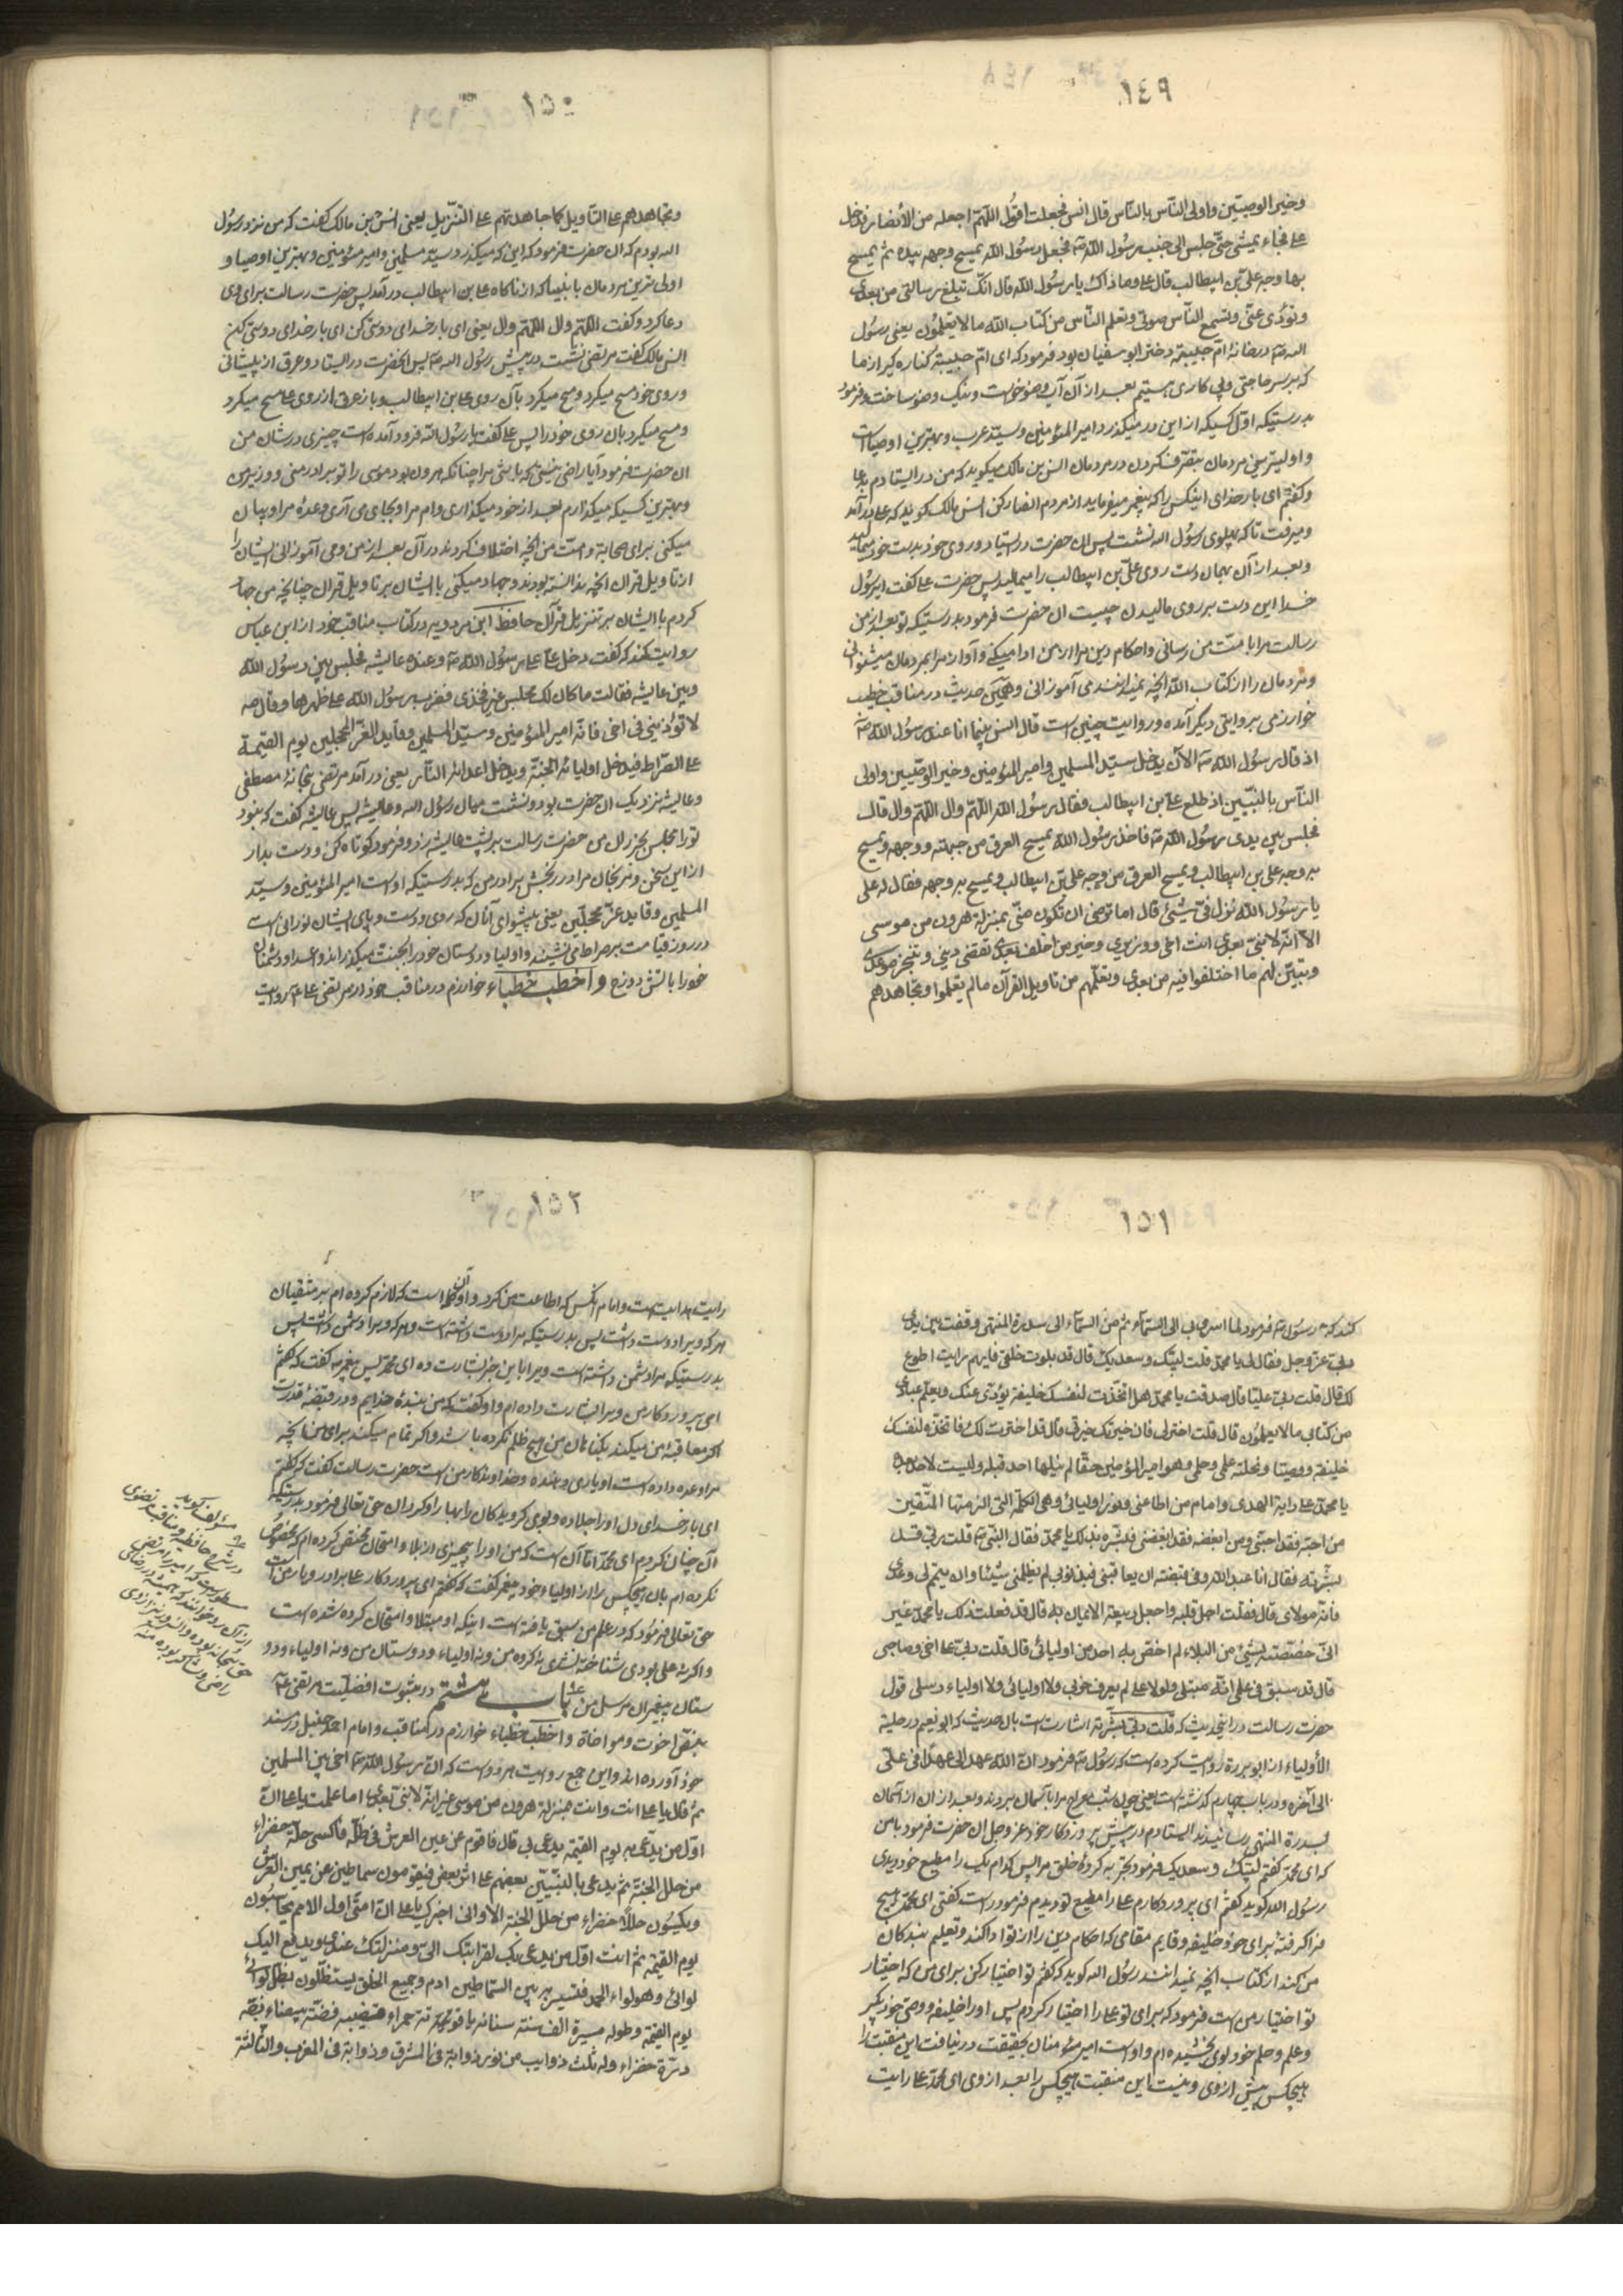 ١٤٩
وخير الوصيّين واولى الناس بالناس قال انس فجعلت اقول اللّهمّ اجعله من الأنصار فدخل
على فجاء يمشى حتّى جلس الى جنب رسول الله صه فجعل رسول الله يمسح وجهه بيده ثم يمسح
بها وجه علىّ بن ابيطالب قال على وما ذاك يا رسول الله قال انّك تبلغ رسالتى من بعدى
وتؤدّى عنّى وتسمع النّاس صوتى وتعلم النّاس من كتاب الله ما لا يعلمون يعنى رسول
الله صه در خانهٔ امّ حبيبه دختر ابو سفيان بود فرمود كه اى امّ حبيبة كناره گير از ما
كه بر سر حاجتى وپى كارى هستيم بعد از آن آب وضو خواست ونيك وضو ساخت وفرمود
بدرستيكه اوّل كسيكه از اين در ميگذرد امير المؤمنين وسيّد عرب وبهترين اوصيا است
واوليترين مردمان بتصرّف كردن در مردمان انس بن مالك ميگويد كه من در ايستادم بدعا
وگفتم اى بار خداى اينكس را كه پيغمبر ميفرمايد از مردم انصار كن انس مالك گويد كه على در آمد
وميرفت تا كه پهلوى رسول الله نشست پس ان حضرت در ايستاد وروى خود بدست خود ميماليد
وبعد از آن بهمان دست روى علىّ بن ابيطالب را ميماليد پس حضرت على گفت اى رسول
خدا اين دست بر روى ماليدن چيست ان حضرت فرمود بدرستيكه تو بعد از من
رسالت مرا بامّت من رسانى واحكام دين مرا از من ادا ميكنى وآواز مرا بمردمان ميشنوانى
ومردمان را از كتاب الله آنچه نميدانند مى آموزانى وهمين حديث در مناقب خطيب
خوارزمى بروايتى ديگر آمده وروايت چنين است قال انس بينما انا عند رسول الله صه
اذ قال رسول الله صه الآن يدخل سيّد المسلمين وامير المؤمنين وخير الوصّيين واولى
النّاس بالنبيّين اذ طلع على بن ابيطالب فقال رسول الله اللّهمّ وال اللّهمّ وال قال
فجلس بين يدى رسول الله صه فاخذ رسول الله يمسح العرق من جبهته ووجهه ويمسح
به وجه على بن ابيطالب ويمسح العرق من وجه علىّ بن ابيطالب ويمسح به وجهه فقال له على
يا رسول الله نزل فىّ شىء قال اما ترضى ان تكون منّى بمنزلة هرون من موسى
الّا انّه لا نبىّ بعدى انت اخى ووزيرى وخير من اخلف بعدى تقضى دينى وتنجز موعدى
وتبيّن لهم ما اختلفوا فيه من بعدى وتعلّمهم من تاويل القرآن ما لم يعلموا وتجاهدهم
١٥٠
وتجاهدهم على التاويل كما جاهدتهم على التنزيل يعنى انس بن مالك گفت كه من نزد رسول
الله بودم كه ان حضرت فرمود كه اين كه ميگذرد سيّد مسلمين وامير مؤمنين وبهترين اوصيا و
اولى ترين مردمان بانبيا كه از ناگاه على بن ابيطالب در آمد پس حضرت رسالت براى وى
دعا كرد وگفت اللّهمّ وال اللّهمّ وال يعنى اى بار خداى دوستى كن اى بار خداى دوستى كن
انس مالك گفت مرتضى نشست در پيش رسول الله صه پس انحضرت در ايستاد وعرق از پيشانى
وروى خود مسح ميكرد ومسح ميكرد بآن روى على بن ابيطالب وباز عرق از روى على مسح ميكرد
ومسح ميكرد بان روى خود را پس على گفت يا رسول الله فرود آمده است چيزى در شان من
ان حضرت فرمود آيا راضى نيستى كه باشى مرا چنانكه هرون بود موسى را تو برادر منى ووزير من
وبهترين كسيكه ميگذارم بعد از خود ميگذارى وام مرا وبجاى مى آرى وعدهٔ مرا وبيان
ميكنى براى صحابة وامّت من آنچه اختلاف كردند در آن بعد از من ومى آموزانى ايشان را
از تاويل قران آنچه ندانسته بودند وجهاد ميكنى با ايشان بر تاويل قران چنانچه من جهاد
كردم با ايشان بر تنزيل قرآن حافظ ابن مردويه در كتاب مناقب خود از ابن عباس
روايت كند كه گفت دخل على على رسول الله صه وعنده عايشه فجلس بين رسول الله
وبين عايشه فقالت ما كان لك مجلس غير فخذى فضرب رسول الله على ظهرها وقال مه
لا تؤذينى فى اخى فانّه امير المؤمنين وسيّد المسلمين وقايد الغرّ المحجّلين يوم القيمة
على الصّراط فيدخل اوليائه الجنّة ويدخل اعدائه النّار يعنى در آمد مرتضى بخانهٔ مصطفى
وعايشه نزديك ان حضرت بود ونشست ميان رسول الله وعايشه پس عايشه گفت كه نبود
تو را مجلس بجز ران من حضرت رسالت بر پشت عايشه زد وفرمود كوتاه كن ودست بدار
از اين سخن ومرنجان مرا در رنجش برادر من كه بدرستيكه او است امير المؤمنين وسيّد
المسلمين وقايد غرّ محجّلين يعنى پيشواى آنان كه روى ودست وپاى ايشان نورانى است
در روز قيامت بر صراط مى نشيند واوليا ودوستان خود را بجنت ميگذراند واعدا ودشمنان
خود را باتش دوزخ واخطب خطباء خوارزم در مناقب خود از مرتضى على عم روايت
١٥١
كند كه رسول صه فرمود لما اسرى بى الى السّماء ثم من السّماء الى سدرة المنتهى وقفت بين يدى
ربى عزّ وجل فقال لى يا محمّد قلت لبّيك وسعديك قال قد بلوت خلقى فايهم رايت اطوع
لك قال قلت ربى عليّا قال صدقت يا محمّد فهل اتّخذت لنفسك خليفة يؤدّى عنك ويعلّم عبادى
من كتابى ما لا يعلمون قال قلت اختر لى فان خيرتك خيرتى قال قد اخترت لك عليّا فاتخذه لنفسك
خليفة ووصيّا ونحلته علمى وحلمى وهو امير المؤمنين حقّا لم ينلها احد قبله وليست لاحد بعده
يا محمّد على راية الهدى وامام من اطاعنى ونور اوليائى وهى الكلمة التى الزمتها المتّقين
من احبّه فقد احبّنى ومن ابغضه فقد ابغضنى فبشّره بذلك يا محمّد فقال النّبى صه قلت ربّى فقد
بشّرته فقال انا عبد الله وفى قبضته ان يعاقبنى فبذنوبى لم يظلمنى شيئا وان يتمم لى وعدى
فانّه مولاى قال فقلت اجل قلبه واجعل ربيعه الايمان به قال قد فعلت ذلك يا محمّد غير
انّى خصّصته بشىء من البلاء لم اخصّ به احدا من اوليائى قال قلت ربىّ على اخى وصاحبى
قال قد سبق فى علمى انّه مبتلى ولولا على لم يعرف حزبى ولا اوليائى ولا اولياء رسلى قول
حضرت رسالت در اين حديث كه قلت ربّى بشّرته اشارت است بان حديث كه ابو نعيم در حلية
الأولياء از ابو برزة روايت كرده است كه رسول صه فرمود انّ الله عهد الى عهدا فى علىّ
الى آخره ودر باب چهارم گذشته است يعنى چون شب معراج مرا بآسمان بردند وبعد از ان از آسمان
بسدرة المنتهى رسانيدند ايستادم در پيش پروردگار خود عز وجل ان حضرت فرمود بامن
كه اى محمّد گفتم لبّيك وسعديك فرمود تجربه كردهٔ خلق مرا پس كدام يك را مطيع خود ديدى
رسول الله گويد گفتم اى پروردگارم على را مطيع تو ديدم فرمود راست گفتى اى محمّد هيچ
فراگرفتهٔ براى خود خليفه وقايم مقامى كه احكام دين را از تو ادا كند وتعليم بندگان
من كند از كتاب آنچه نميدانند رسول الله گويد كه گفتم تو اختيار كن براى من كه اختيار
تو اختيار من است فرمود كه براى تو على را اختيار كردم پس او را خليفه ووصى خود بگير
وعلم وحلم خود بوى بخشيده ام واو است امير مؤمنان بحقيقت درنيافت اين منقبت را
هيچكس پيش از وى ونيست اين منقبت هيچكس را بعد از وى اى محمّد على رايت
١٥٢
رايت هدايت است وامام آنكس كه اطاعت من كرد واو آن كلمه است كه لازم كرده ام بر متّقيان
هر كه ويرا دوست داشت پس بدرستيكه مرا دوست داشته است وهر كه ويرا دشمن داشت پس
بدرستيكه مرا دشمن داشته است ويرا باين خبر بشارت ده اى محمّد پس پيغمبر صه گفت كه گفتم
اى پروردگار من ويرا بشارت داده ام واو گفت كه من بندهٔ خدايم ودر قبضهٔ قدرت
اگر معاقبهٔ من ميكند بگناهان من هيچ ظلم نكرده باشد واگر تمام ميكند براى من آنچه
مرا وعده داده است او يارى دهنده وخداوندگار من است حضرت رسالت گفت كه گفتم
اى بار خداى دل او را جلا ده وبوى گرويدگان را بهار او گردان حق تعالى فرمود بدرستيكه
آن چنان كردم اى محمّد امّا آن است كه من او را بچيزى از بلا وامتحان مختص كرده ام كه مخصوص
نكرده ام بان هيچكس را از اولياء خود پيغمبر گفت كه گفتم اى پروردگار على برادر ويار من است
حق تعالى فرمود كه در علم من سبق يافته است اينكه او مبتلا وامتحان كرده شده است
واگر نه على بودى شناخته نشدى نه گروه من ونه اولياء ودوستان من ونه اولياء ودو
ستان پيغمبران مرسل من باب هشتم در ثبوت افضليّت مرتضى عم
بنصّ اخوت ومواخاة واخطب خطباء خوارزم در مناقب وامام احمد حنبل در مسند
خود آورده اند واين جمع روايت هر دو است كه انّ رسول الله صه اخى بين المسلمين
ثم قال يا على انت اخى وانت بمنزلة هرون من موسى غير انّه لا نبىّ بعدى اما علمت يا على انّ
اوّل من يدعى به يوم القيمة يدعى بى قال فاقوم عن يمين العرش فى ظلّه فاكسى حلّة خضراء
من حلل الجنّة ثم يدعى بالنبيّين بعضهم على اثر بعض فيقومون سماطين عن يمين العرش
ويكسون حللا خضراء من حلل الجنة الا وانى اخبرك يا على انّ امتّى اول الامم يحاسبون
يوم القيمة ثم انت اوّل من يدعى بك لقرابتك الىّ ومنزلتك عندى ويدفع اليك
لوائى وهو لواء الحمد فتسير به بين السّماطين ادم وجميع الخلق يستظلّون بظلّ لوائى
يوم القيمة وطوله مسيرة الف سنة سنانه ياقوتة حمراء قضيبه فضّة بيضاء زجّه
درّة خضراء وله ثلث ذوايب من نور ذوابة فى المشرق وذوابة فى المغرب والثالثة
مؤلف گويد
در شرح حافظيه
مسطور است كه امير المرتضى
راضى